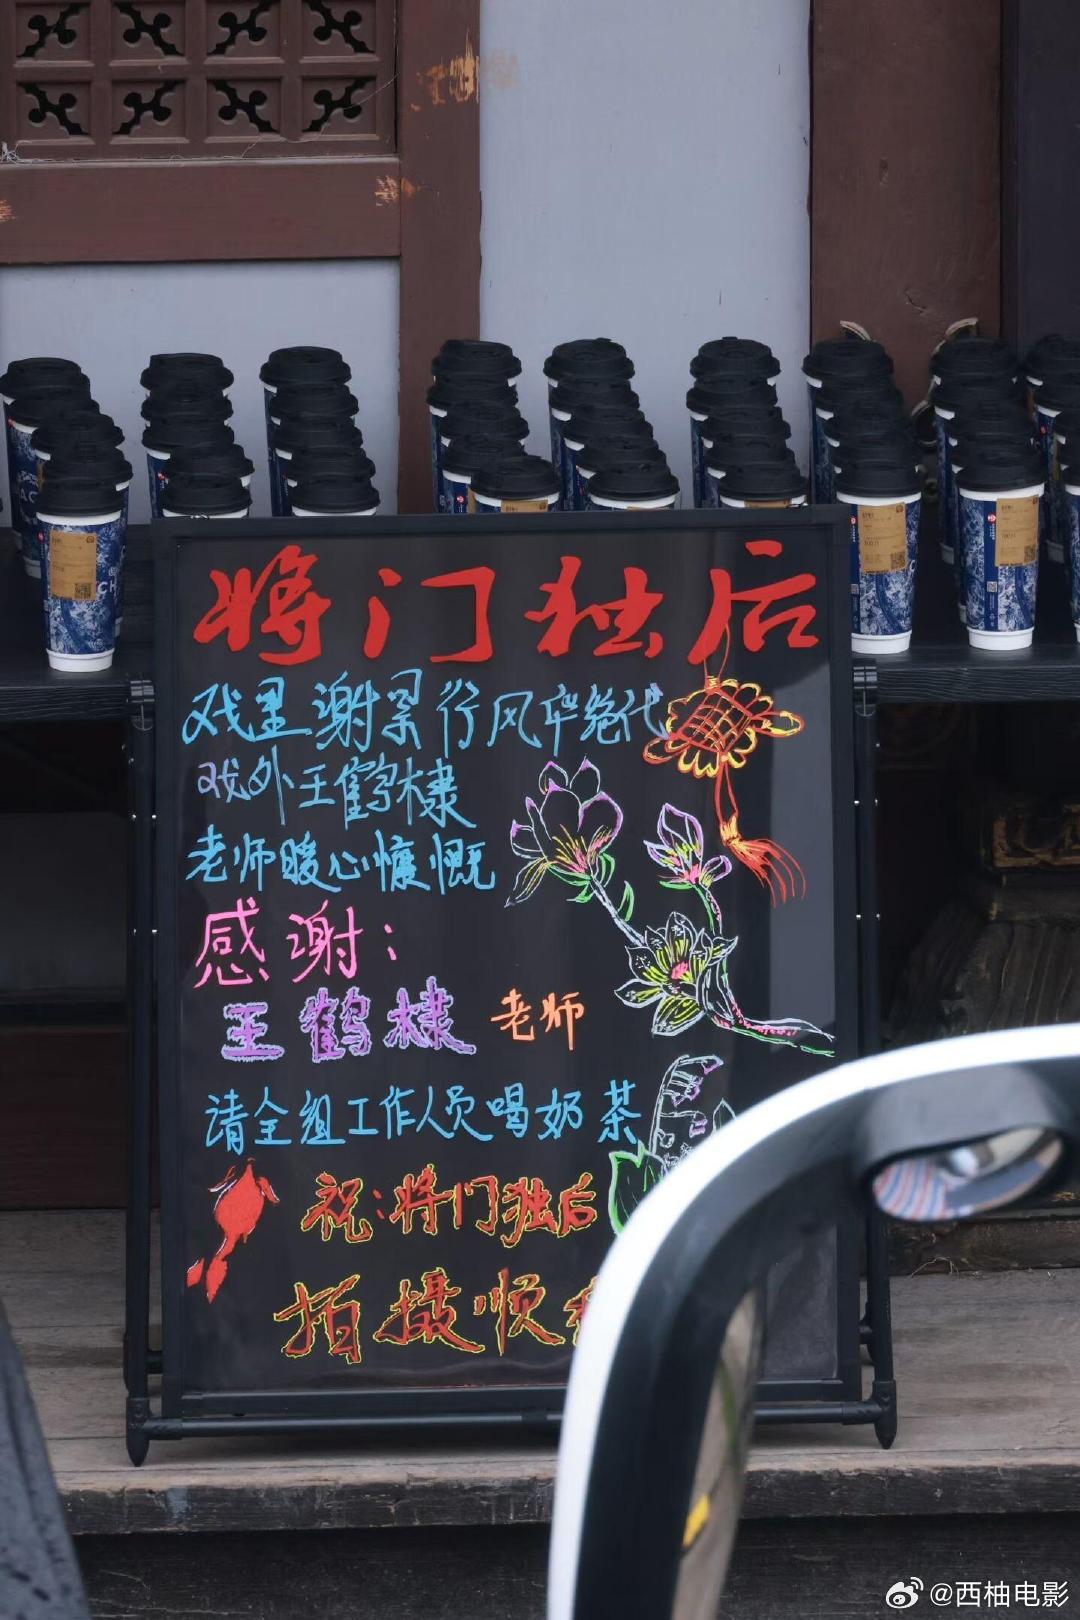 将门独后
戏里谢景行风华绝代
戏外王鹤棣
老师暖心慷慨
感谢:
王鹤棣 老师
请全组工作人员喝奶茶
祝:将门独后
拍摄顺
@西柚电影